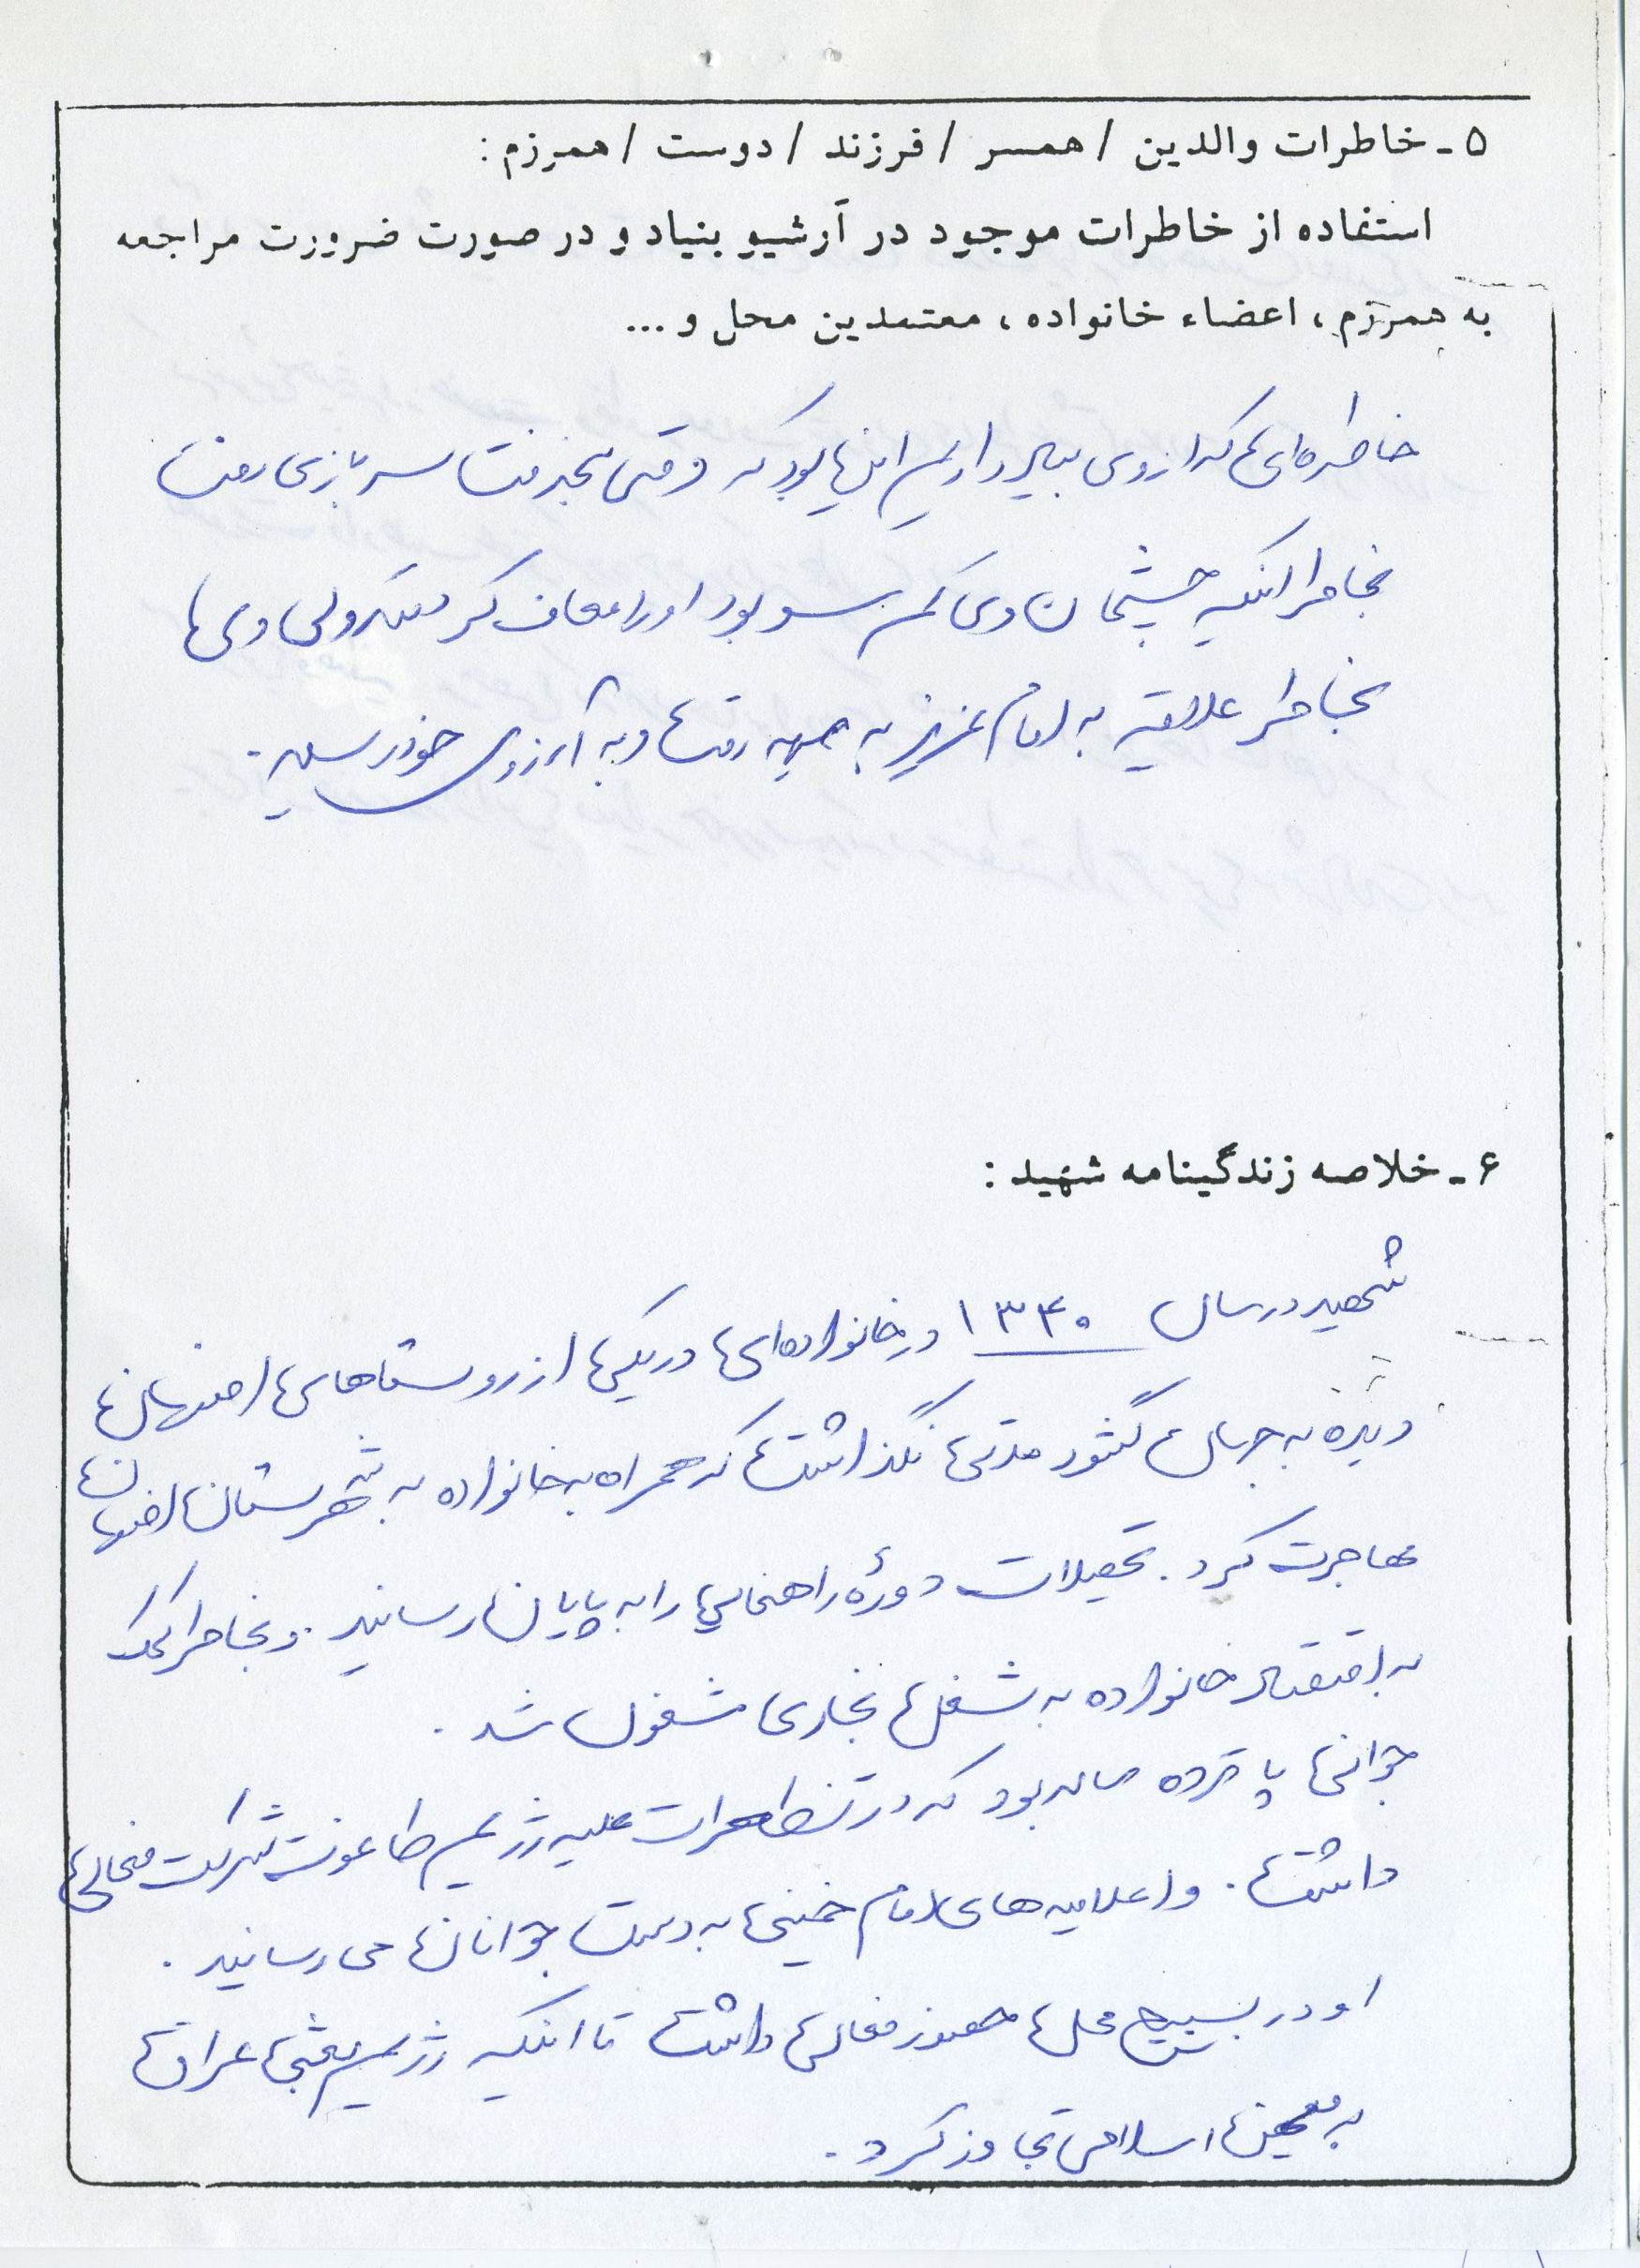 ۵ - خاطرات والدین / همسر / فرزند / دوست / همرزم :
استفاده از خاطرات موجود در آرشیو بنیاد و در صورت ضرورت مراجعه
به همرزم ، اعضاء خانواده ، معتمدین محل و ...
خاطره‌ای که از وی بیاد داریم این بود که وقتی بخدمت سربازی رفت
بخاطر اینکه چشمان وی کم سو بود او را معاف کردند ولی وی
بخاطر علاقه به امام عزیز به جبهه رفت و به آرزوی خود رسید .
۶ - خلاصه زندگینامه شهید :
شهید در سال ۱۳۴۰ در خانواده‌ای در یکی از روستاهای اصفهان
دیده به جهان گشود مدتی نگذاشت که همراه خانواده به شهرستان اصفهان
مهاجرت کرد . تحصیلات دورهٔ راهنمایی را به پایان رسانید . و بخاطر کمک
به اقتصاد خانواده به شغل نجاری مشغول شد .
جوانی پانزده ساله بود که در تظاهرات علیه رژیم طاغوت شرکت فعالی
داشت . و اعلامیه‌های امام خمینی به دست جوانان می رسانید .
او در بسیج محل حضور فعالی داشت تا اینکه رژیم بعثی عراق
به میهن اسلامی تجاوز کرد .